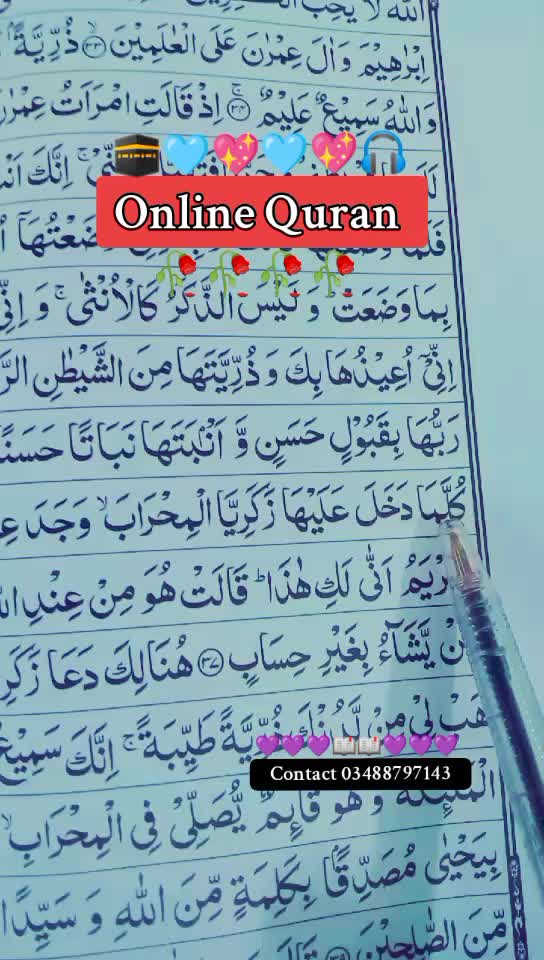 اللّٰهَ لَا يُحِبُّ
اِبْرٰهِيْمَ وَاٰلَ عِمْرٰنَ عَلَى الْعٰلَمِيْنَ ۝۳۳ ذُرِّيَّةًۢ
وَاللّٰهُ سَمِيْعٌ عَلِيْمٌ ۝۳۴ اِذْ قَالَتِ امْرَاَتُ عِمْرٰنَ
اِنَّكَ
Online Quran
بِمَا وَضَعَتْ وَلَيْسَ الذَّكَرُ كَالْاُنْثٰى ۚ وَاِنِّيْ
اِنِّيْۤ اُعِيْذُهَا بِكَ وَذُرِّيَّتَهَا مِنَ الشَّيْطٰنِ
رَبُّهَا بِقَبُوْلٍ حَسَنٍ وَّاَنْۢبَتَهَا نَبَاتًا حَسَنًا
كُلَّمَا دَخَلَ عَلَيْهَا زَكَرِيَّا الْمِحْرَابَ ۙ وَجَدَ
اَنّٰى لَكِ هٰذَا ؕ قَالَتْ هُوَ مِنْ عِنْدِ
يَّشَآءُ بِغَيْرِ حِسَابٍ ۝۳۷ هُنَالِكَ دَعَا
هَبْ لِيْ مِنْ لَّدُنْكَ ذُرِّيَّةً طَيِّبَةً ۚ اِنَّكَ سَمِيْعُ
Contact 03488797143
الْمَلٰٓئِكَةُ وَهُوَ قَآئِمٌ يُّصَلِّيْ فِي الْمِحْرَابِ ۙ
بِيَحْيٰى مُصَدِّقًۢا بِكَلِمَةٍ مِّنَ اللّٰهِ وَسَيِّدًا
مِّنَ الصّٰلِحِيْنَ ۝۳۹